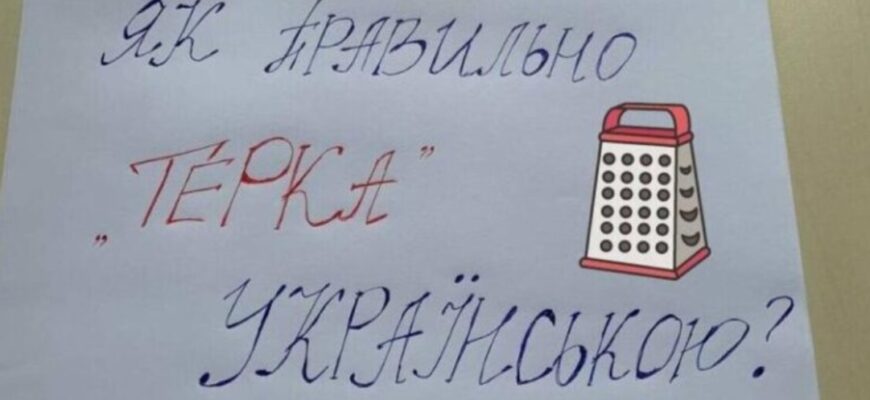 ЯК ПРАВИЛЬНО
„ТЕ́РКА”
УКРАЇНСЬКОЮ?